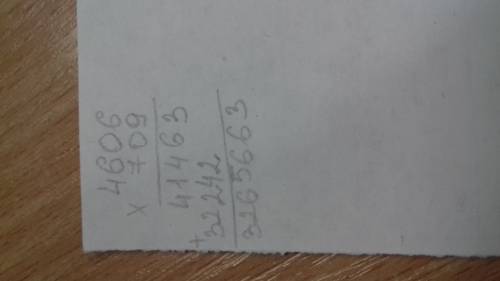 4606
x 709
41463
+ 32242
3265663